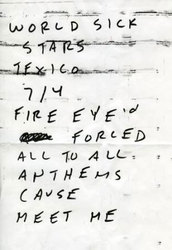 WORLD SICK
STARS
TEXICO
7/4
FIRE EYE'd
FORCED
ALL TO ALL
ANTHEMS
CAUSE
MEET ME